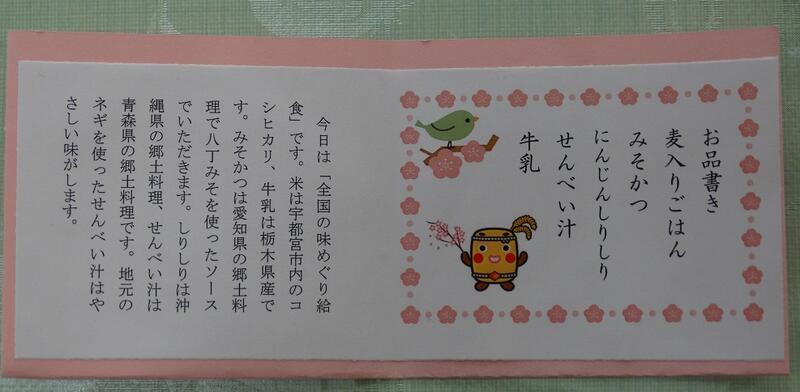 お品書き
麦入りごはん
みそかつ
にんじんしりしり
せんべい汁
牛乳
今日は「全国の味めぐり給
食」です。米は宇都宮市内のコ
シヒカリ、牛乳は栃木県産で
す。みそかつは愛知県の郷土料
理で八丁みそを使ったソース
でいただきます。しりしりは沖
縄県の郷土料理、せんべい汁は
青森県の郷土料理です。地元の
ネギを使ったせんべい汁はや
さしい味がします。